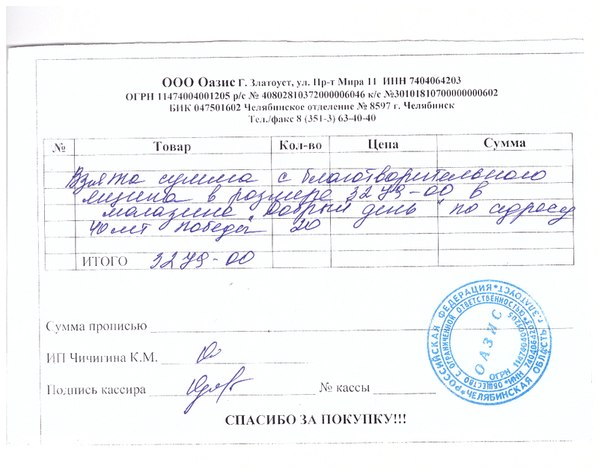 ООО Оазис Г. Златоуст, ул. Пр-т Мира 11 ИНН 7404064203
ОГРН 11474004001205 р/с № 40802810372000006046 к/с №30101810700000000602
БИК 047501602 Челябинское отделение № 8597 г. Челябинск
Тел./факс 8 (351-3) 63-40-40
№ Товар Кол-во Цена Сумма
Взята сумма с благотворительного
ящика в размере 3249-00 в
магазине "Добрый день" по адресу
40 лет Победы 20
ИТОГО 3249-00
Сумма прописью
ИП Чичигина К.М.
Подпись кассира № кассы
СПАСИБО ЗА ПОКУПКУ!!!
РОССИЙСКАЯ ФЕДЕРАЦИЯ * Г.ЗЛАТОУСТ * ЧЕЛЯБИНСКАЯ ОБЛАСТЬ *
ОБЩЕСТВО С ОГРАНИЧЕННОЙ ОТВЕТСТВЕННОСТЬЮ
ОАЗИС